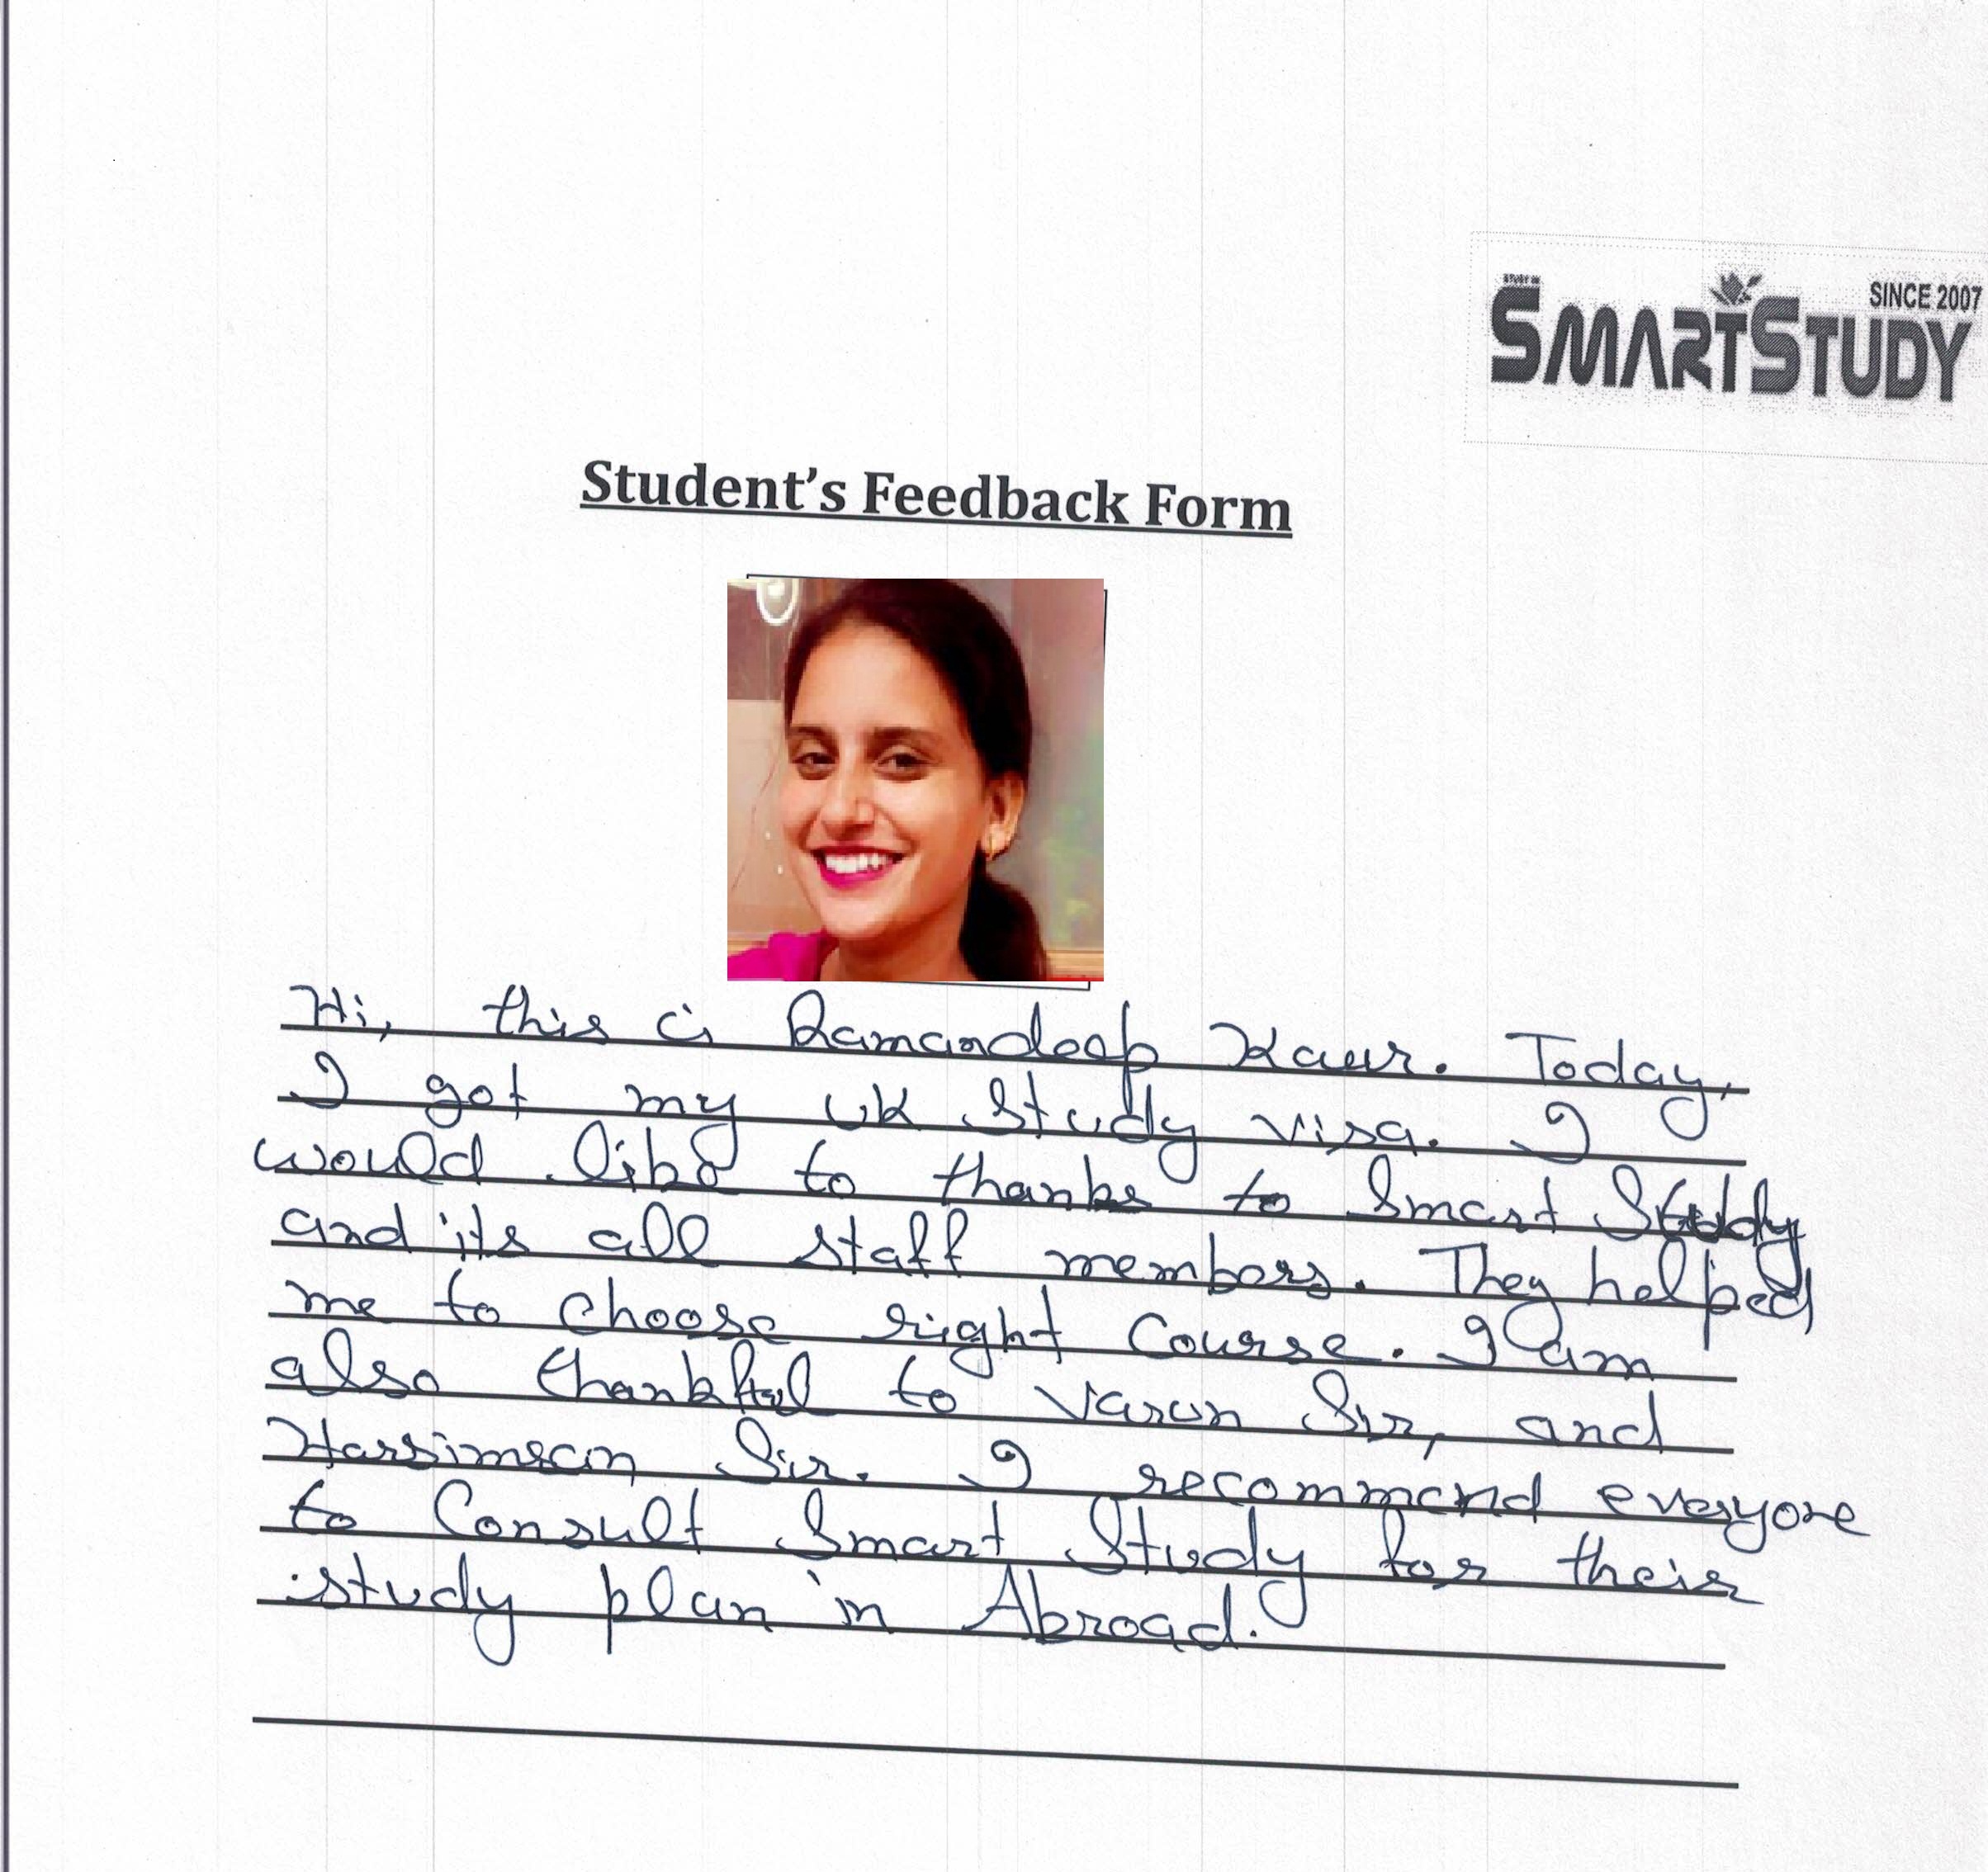 STUDY IN
SMARTSTUDY
SINCE 2007
Student's Feedback Form
Hi, this is Ramandeep Kaur. Today,
I got my UK Study visa. I
would like to thanks to Smart Study
and its all staff members. They helped
me to choose right Course. I am
also thankful to Varun Sir, and
Harsimran Sir. I recommend everyone
to Consult Smart Study for their
study plan in Abroad.